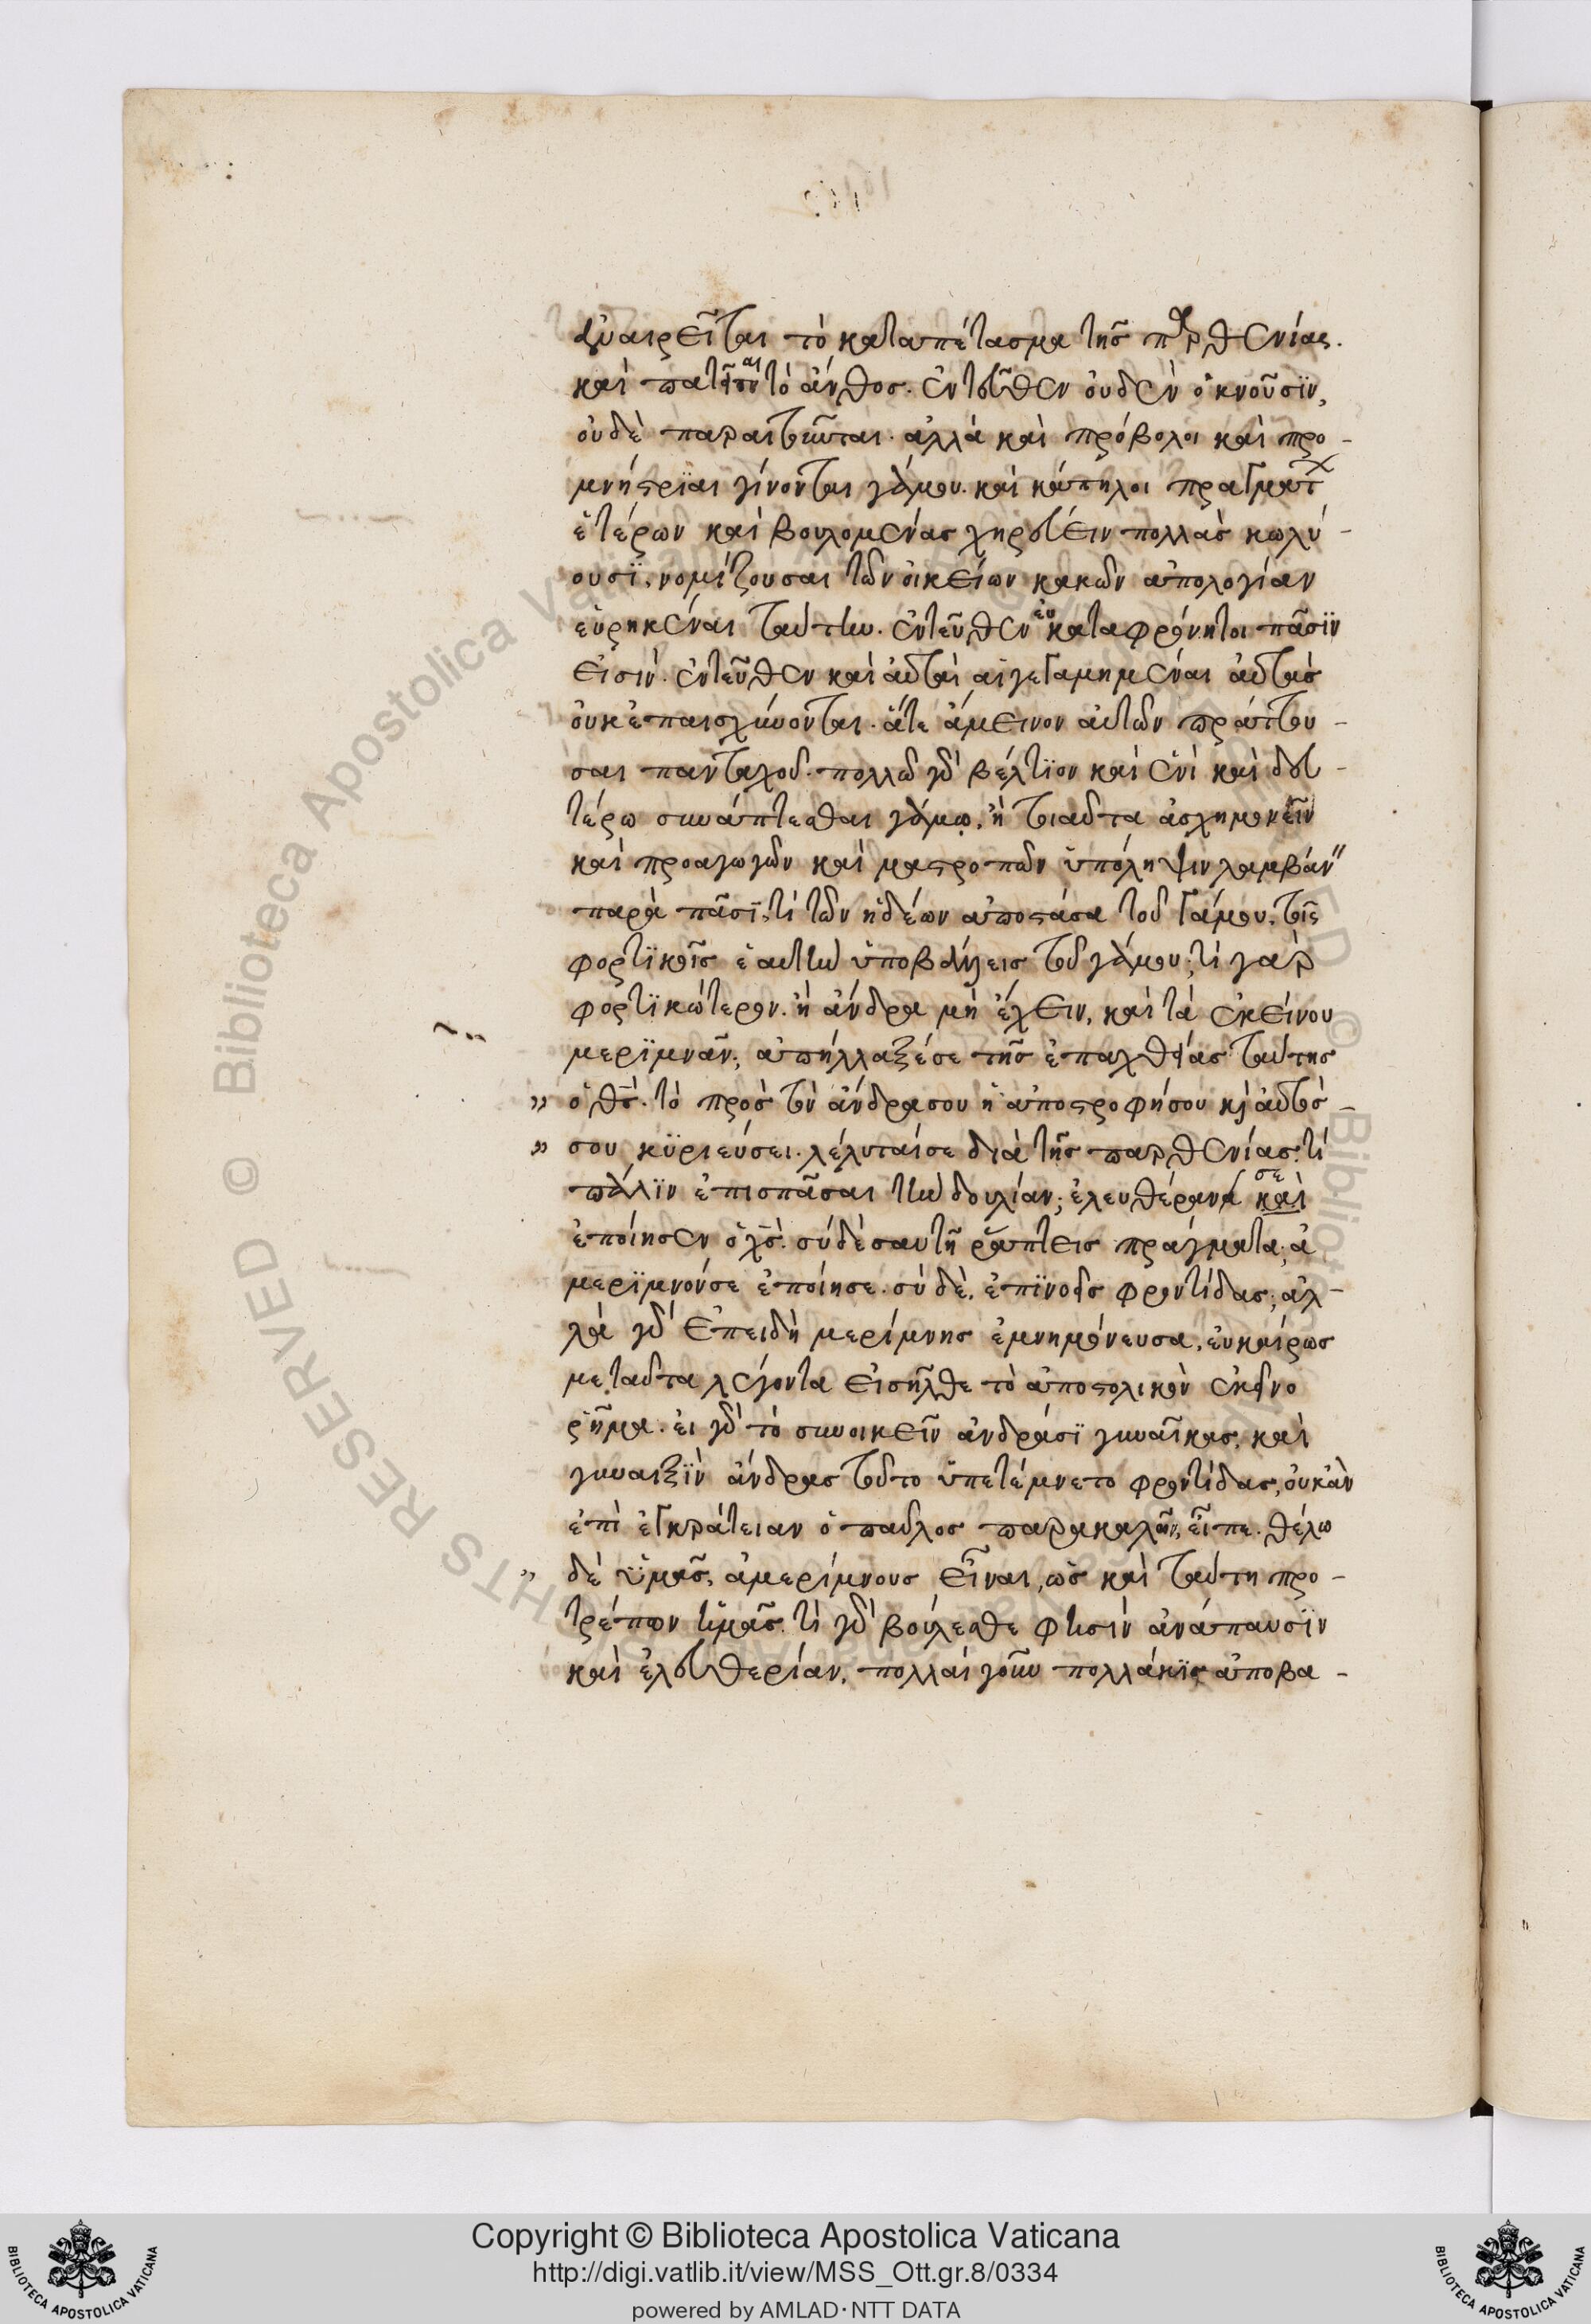 ἀναιρεῖται τὸ καταπέτασμα τῆς παρθενίας.
καὶ πατεῖται τὸ ἄνθος. ἐντεῦθεν οὐδὲν ὀκνοῦσϊν,
οὐδὲ παραιτοῦνται. ἀλλὰ καὶ πρόβολοι καὶ προ-
μνήστριαι γίνονται γάμου. καὶ κάπηλοι πραγμάτ
ἑτέρων καὶ βουλομένας χηρεύειν πολλὰς κωλύ-
ουσϊ, νομίζουσαι τῶν οἰκείων κακῶν ἀπολογίαν
εὑρηκέναι ταύτην. ἐντεῦθεν εὐκαταφρόνητοι πᾶσϊν
εἰσίν. ἐντεῦθεν καὶ αὐταὶ αἱ γεγαμημέναι αὐτὰς
οὐκ ἐπαισχύνονται. ἅτε ἄμεινον αὐτῶν πράττου-
σαι πανταχοῦ. πολλῶ γὰρ βέλτϊον καὶ ἑνὶ καὶ δευ-
τέρω συνάπτεσθαι γάμω, ἢ τοιαῦτα ἀσχημονεῖν
καὶ προαγωγῶν καὶ μαστροπῶν ὑπόληψιν λαμβάν
παρὰ πᾶσϊ, τί τῶν ἡδέων ἀποστᾶσα τοῦ γάμου, τοῖς
φορτϊκοῖς ἑαυτὴν ὑποβάλλεις τοῦ γάμου; τί γὰρ
φορτϊκώτερον. ἢ ἄνδρα μὴ ἔχειν, καὶ τὰ ἐκείνου
μερϊμνᾶν; ἀπήλλαξέ σε τῆς ἐπαχθείας ταύτης
ὁ θς. τὸ πρὸς τὸν ἄνδρα σου ἡ ἀποστροφή σου κ αὐτός -
σου κϋριεύσει. λέλυταί σε διὰ τῆς παρθενίας. τί
πάλϊν ἐπισπᾶσαι τὴν δουλίαν; ἐλευθέραν σε καὶ
ἐποίησεν ὁ χς. σὺ δὲ σαυτῆ ῥάπτεις πράγματα; ἀ
μερϊμνόν σε ἐποίησε. σὺ δὲ, ἐπϊνοεῖς φροντίδας; ἀλ-
λὰ γὰρ ἐπειδὴ μερίμνης ἐμνημόνευσα, εὐκαίρως
με ταῦτα λέγοντα εἰσῆλθε τὸ ἀποστολικὸν ἐκεῖνο
ῥῆμα. εἰ γὰρ τὸ συνοικεῖν ἀνδράσϊ γυναῖκας, καὶ
γυναιξὶν ἄνδρας τοῦτο ὑπετέμνετο φροντίδας, οὐκ ἂν
ἐπὶ ἐγκράτειαν ὁ παῦλος παρακαλῶν, εἶπε. θέλω
δὲ ὑμᾶς, ἀμερίμνους εἶναι, ὡς καὶ ταύτη προ-
τρέπων ἡμᾶς. τί γὰρ βούλεσθε φησὶν ἀνάπαυσϊν
καὶ ἐλευθερίαν, πολλαὶ γοῦν πολλάκϊς ἀποβα-
Copyright © Biblioteca Apostolica Vaticana
http://digi.vatlib.it/view/MSS_Ott.gr.8/0334
powered by AMLAD·NTT DATA